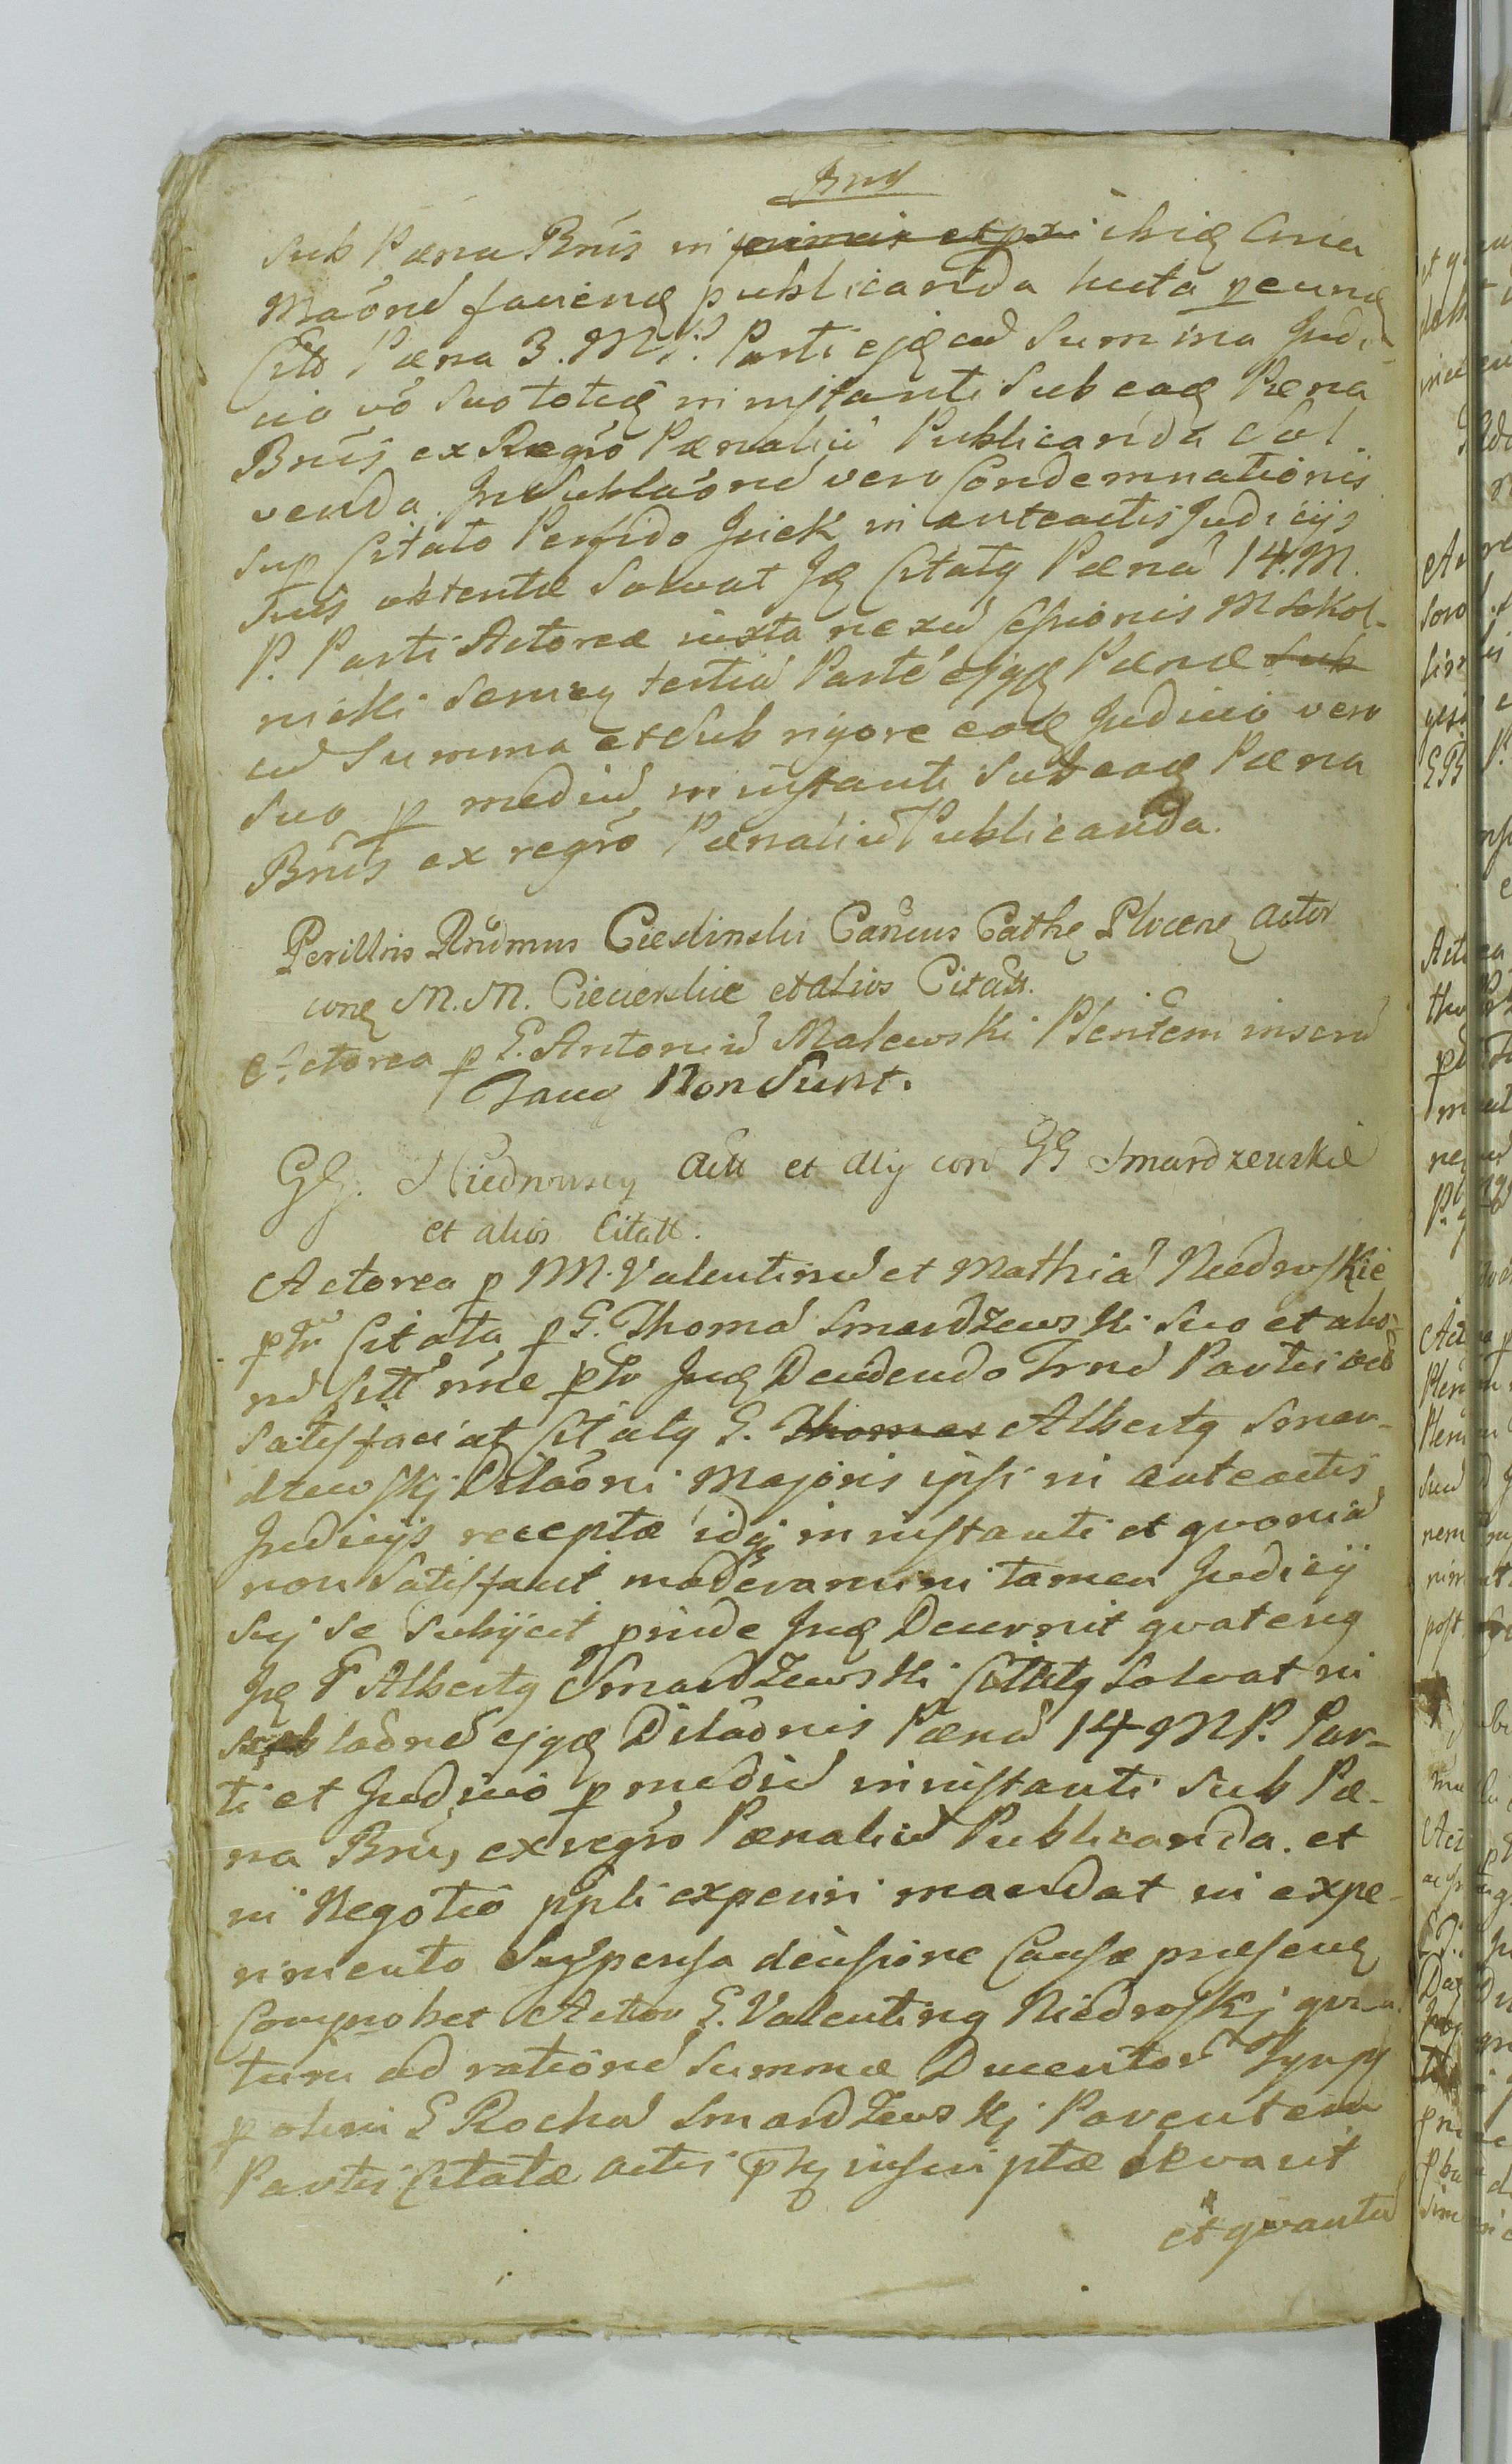 sub Pæna Bnis in primis et pxi ibidę Cria
Maond facienę publicanda luita peunę
Cito Pæna 3. M. P. Parti ejdę cud Summa Judi-
cio vo suo totidę in instanti Sub eadę Pæna
Bnis ex Regro Pænaliu Publicanda Sol
venda. In Sublaond vero Condemnationis
sup Citato Perfido Jciek in anteactis Judicijs
suis obtentæ Solvat Idę Citatg Pænā 14. M.
P. Parti Actoreæ iuxta nexud Cessionis M Sokol-
nicki Servieg tertiā Partē ejgdę Pænæ Sub
cud Summa et Sub rigore eodę Judicio vero
Suo p mediud in instanti Sub eadę Pæna
Bnis ex regro Pænaliu Publicanda.
Perillris Rndmus Cieslinski Cancus Cathę Plocenę Actor
conę M. M. Ciecierskie et alios Citatt.
Actorea p G. Antoniud Malewski Plentem inserud
Causa Non Sunt.
GG. Niedrowscy Actt et Alij con GG Smardzewskie
et alios Citatt.
Actorea p M. Valentinud et Mathiā Niedroskie
ptr Citata p G. Thomā Smardzewski Suo et alio-
rd Citt nne ptr Judę Decidendo Trnd Partis Act
Satisfaciat Citatg G. Thomas Albertg Smar-
dzewskj Dilaōni Majoris ipsi in anteactis
Judicijs receptæ idq in instanti et qvoniā
non Satisfacit moderamini tamen Judicij
Suj se Subijcit pinde Judę Decernit qvateng
Idę G Albertg Smardzewski Citatg Solvat in
Sublaōnd ejgdę Dilaōnis Pænā 14 MP. Par-
ti et Judicio p mediud in instanti Sub Pæ-
na Bnis, ex regro Pænaliu Publicanda. et
in Negotio ppli experiri mandat in expe-
rimento Suspensa decisione Causæ præsenę
Comprobet Actor G. Valenting Niedroskj qvan-
tum ad rationd Summæ Ducentord Tymph
p olim G Rochā Smardzewskj Parentem
Partis Citatæ actis ptg inscriptæ levavit
et qvantud